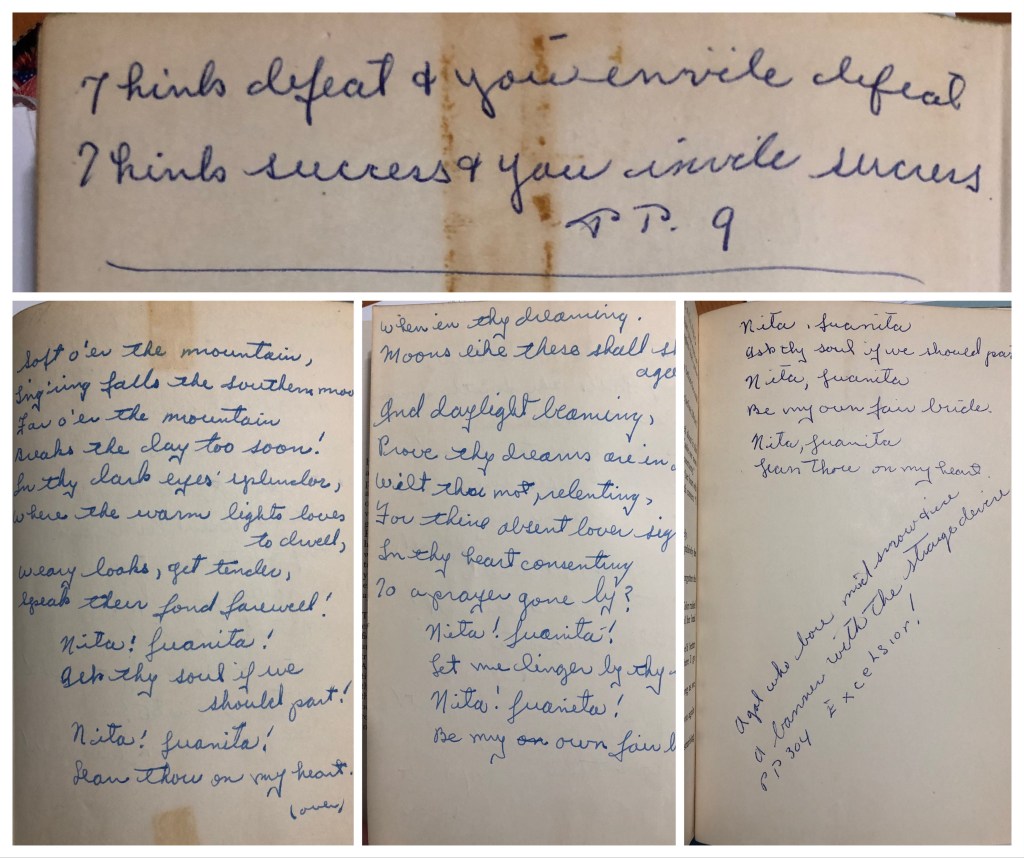 Think defeat & you invite defeat
Think success & you invite success.
PP. 9
Soft o'er the mountain,
Ling'ring falls the southern moo
Far o'er the mountain
Breaks the day too soon!
In thy dark eyes' splendor,
Where the warm lights loves
to dwell,
Weary looks, yet tender,
Speak their fond farewell!
Nita! Juanita!
Ask thy soul if we
should part!
Nita! Juanita!
Lean thou on my heart.
(over)
When in thy dreaming.
Moons like these shall sh
aga
And daylight beaming,
Prove thy dreams are in
Wilt thou not, relenting,
For thine absent lover sig
In thy heart consenting
To a prayer gone by?
Nita! Juanita!
Let me linger by thy
Nita! Juanita!
Be my on own fair b
Nita, Juanita
Ask thy soul if we should par
Nita, Juanita
Be my own fair bride.
Nita, Juanita
Lean thou on my heart.
A gal who bore mid snow & ice
A banner with the strange device
PP 304 Excelsior!